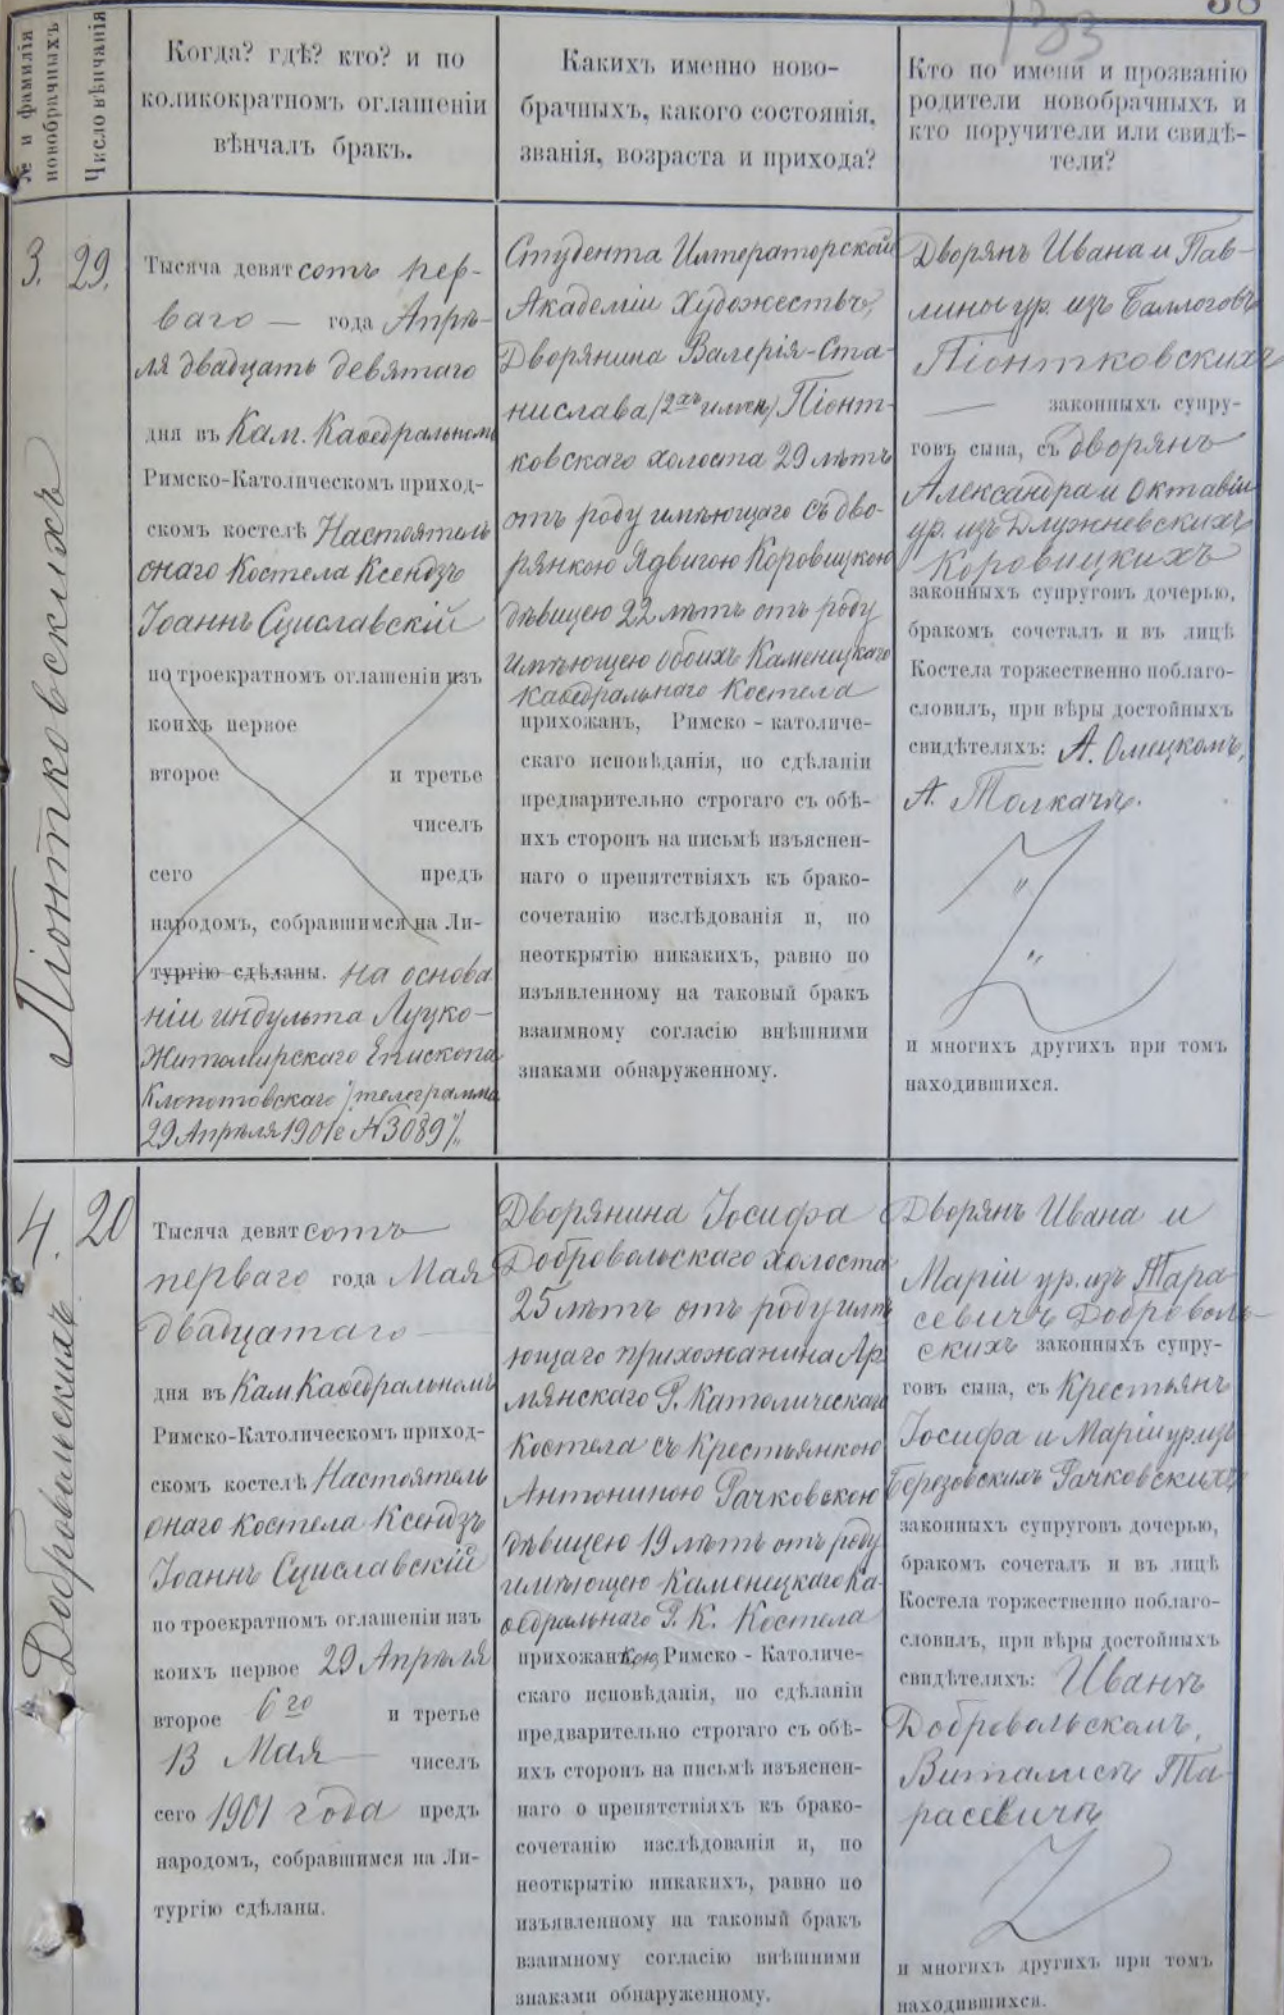 38
1303
№ и фамилія
новобрачныхъ
Число вѣнчанія
Когда? гдѣ? кто? и по
коликократномъ оглашеніи
вѣнчалъ бракъ.
Какихъ именно ново-
брачныхъ, какого состоянія,
званія, возраста и прихода?
Кто по имени и прозванію
родители новобрачныхъ и
кто поручители или свидѣ-
тели?
3.
Піонтковскихъ
29.
Тысяча девятсотъ пер-
ваго — года Апрѣ-
ля двадцать девятаго
дня въ Кам. Каѳедральномъ
Римско-Католическомъ приход-
скомъ костелѣ Настоятель
онаго Костела Ксендзъ
Іоаннъ Сциславскій
по троекратномъ оглашеніи изъ
коихъ первое
второе и третье
чиселъ
сего предъ
народомъ, собравшимся на Ли-
тургію сдѣланы. на основа
ніи индульта Луцко-
Житомирскаго Епископа
Клопотовскаго /телеграмма
29 Апрѣля 1901 г. №3089/.
Студента Императорской
Академіи Художествъ,
Дворянина Валерія-Ста-
нислава /2хъ имен./ Піонт-
ковскаго холоста 29 лѣтъ
отъ роду имѣющаго съ дво-
рянкою Ядвигою Коровицкою
дѣвицею 22 лѣтъ отъ роду
имѣющею обоихъ Каменицкаго
Каѳедральнаго Костела
прихожанъ, Римско - католиче-
скаго исповѣданія, по сдѣланіи
предварительно строгаго съ обѣ-
ихъ сторонъ на письмѣ изъяснен-
наго о препятствіяхъ къ брако-
сочетанію изслѣдованія и, по
неоткрытію никакихъ, равно по
изъявленному на таковый бракъ
взаимному согласію внѣшними
знаками обнаруженному.
Дворянъ Ивана и Пав-
лины ур. изъ Баллоговъ
Піонтковскихъ
— законныхъ супру-
говъ сына, съ дворянъ
Александра и Октавіи
ур. изъ Длужневскихъ
Коровицкихъ
законныхъ супруговъ дочерью,
бракомъ сочеталъ и въ лицѣ
Костела торжественно поблаго-
словилъ, при вѣры достойныхъ
свидѣтеляхъ: А. Омецкомъ,
А. Толкачѣ.
и многихъ другихъ при томъ
находившихся.
4.
Добровольскихъ
20
Тысяча девятсотъ
перваго года Мая
двадцатаго
дня въ Кам. Каѳедральномъ
Римско-Католическомъ приход-
скомъ костелѣ Настоятель
онаго Костела Ксендзъ
Іоаннъ Сциславскій
по троекратномъ оглашеніи изъ
коихъ первое 29 Апрѣля
второе 6го и третье
13 Мая чиселъ
сего 1901 года предъ
народомъ, собравшимся на Ли-
тургію сдѣланы.
Дворянина Іосифа
Добровольскаго холоста
25 лѣтъ отъ роду имѣ
ющаго прихожанина Ар
мянскаго Р. Католическаго
Костела съ Крестьянкою
Антониною Рачковскою
дѣвицею 19 лѣтъ отъ роду
имѣющею Каменицкаго Ка-
ѳедральнаго Р. К. Костела
прихожанкою, Римско - Католиче-
скаго исповѣданія, по сдѣланіи
предварительно строгаго съ обѣ-
ихъ сторонъ на письмѣ изъяснен-
наго о препятствіяхъ къ брако-
сочетанію изслѣдованія и, по
неоткрытію никакихъ, равно по
изъявленному на таковый бракъ
взаимному согласію внѣшними
знаками обнаруженному.
Дворянъ Ивана и
Маріи ур. изъ Тара
севичъ Доброволь-
скихъ законныхъ супру-
говъ сына, съ Крестьянъ
Іосифа и Маріи ур. изъ
Березовскихъ Рачковскихъ
законныхъ супруговъ дочерью,
бракомъ сочеталъ и въ лицѣ
Костела торжественно поблаго-
словилъ, при вѣры достойныхъ
свидѣтеляхъ: Иванѣ
Добровольскомъ,
Виталисѣ Та
расевичѣ
и многихъ другихъ при томъ
находившихся.